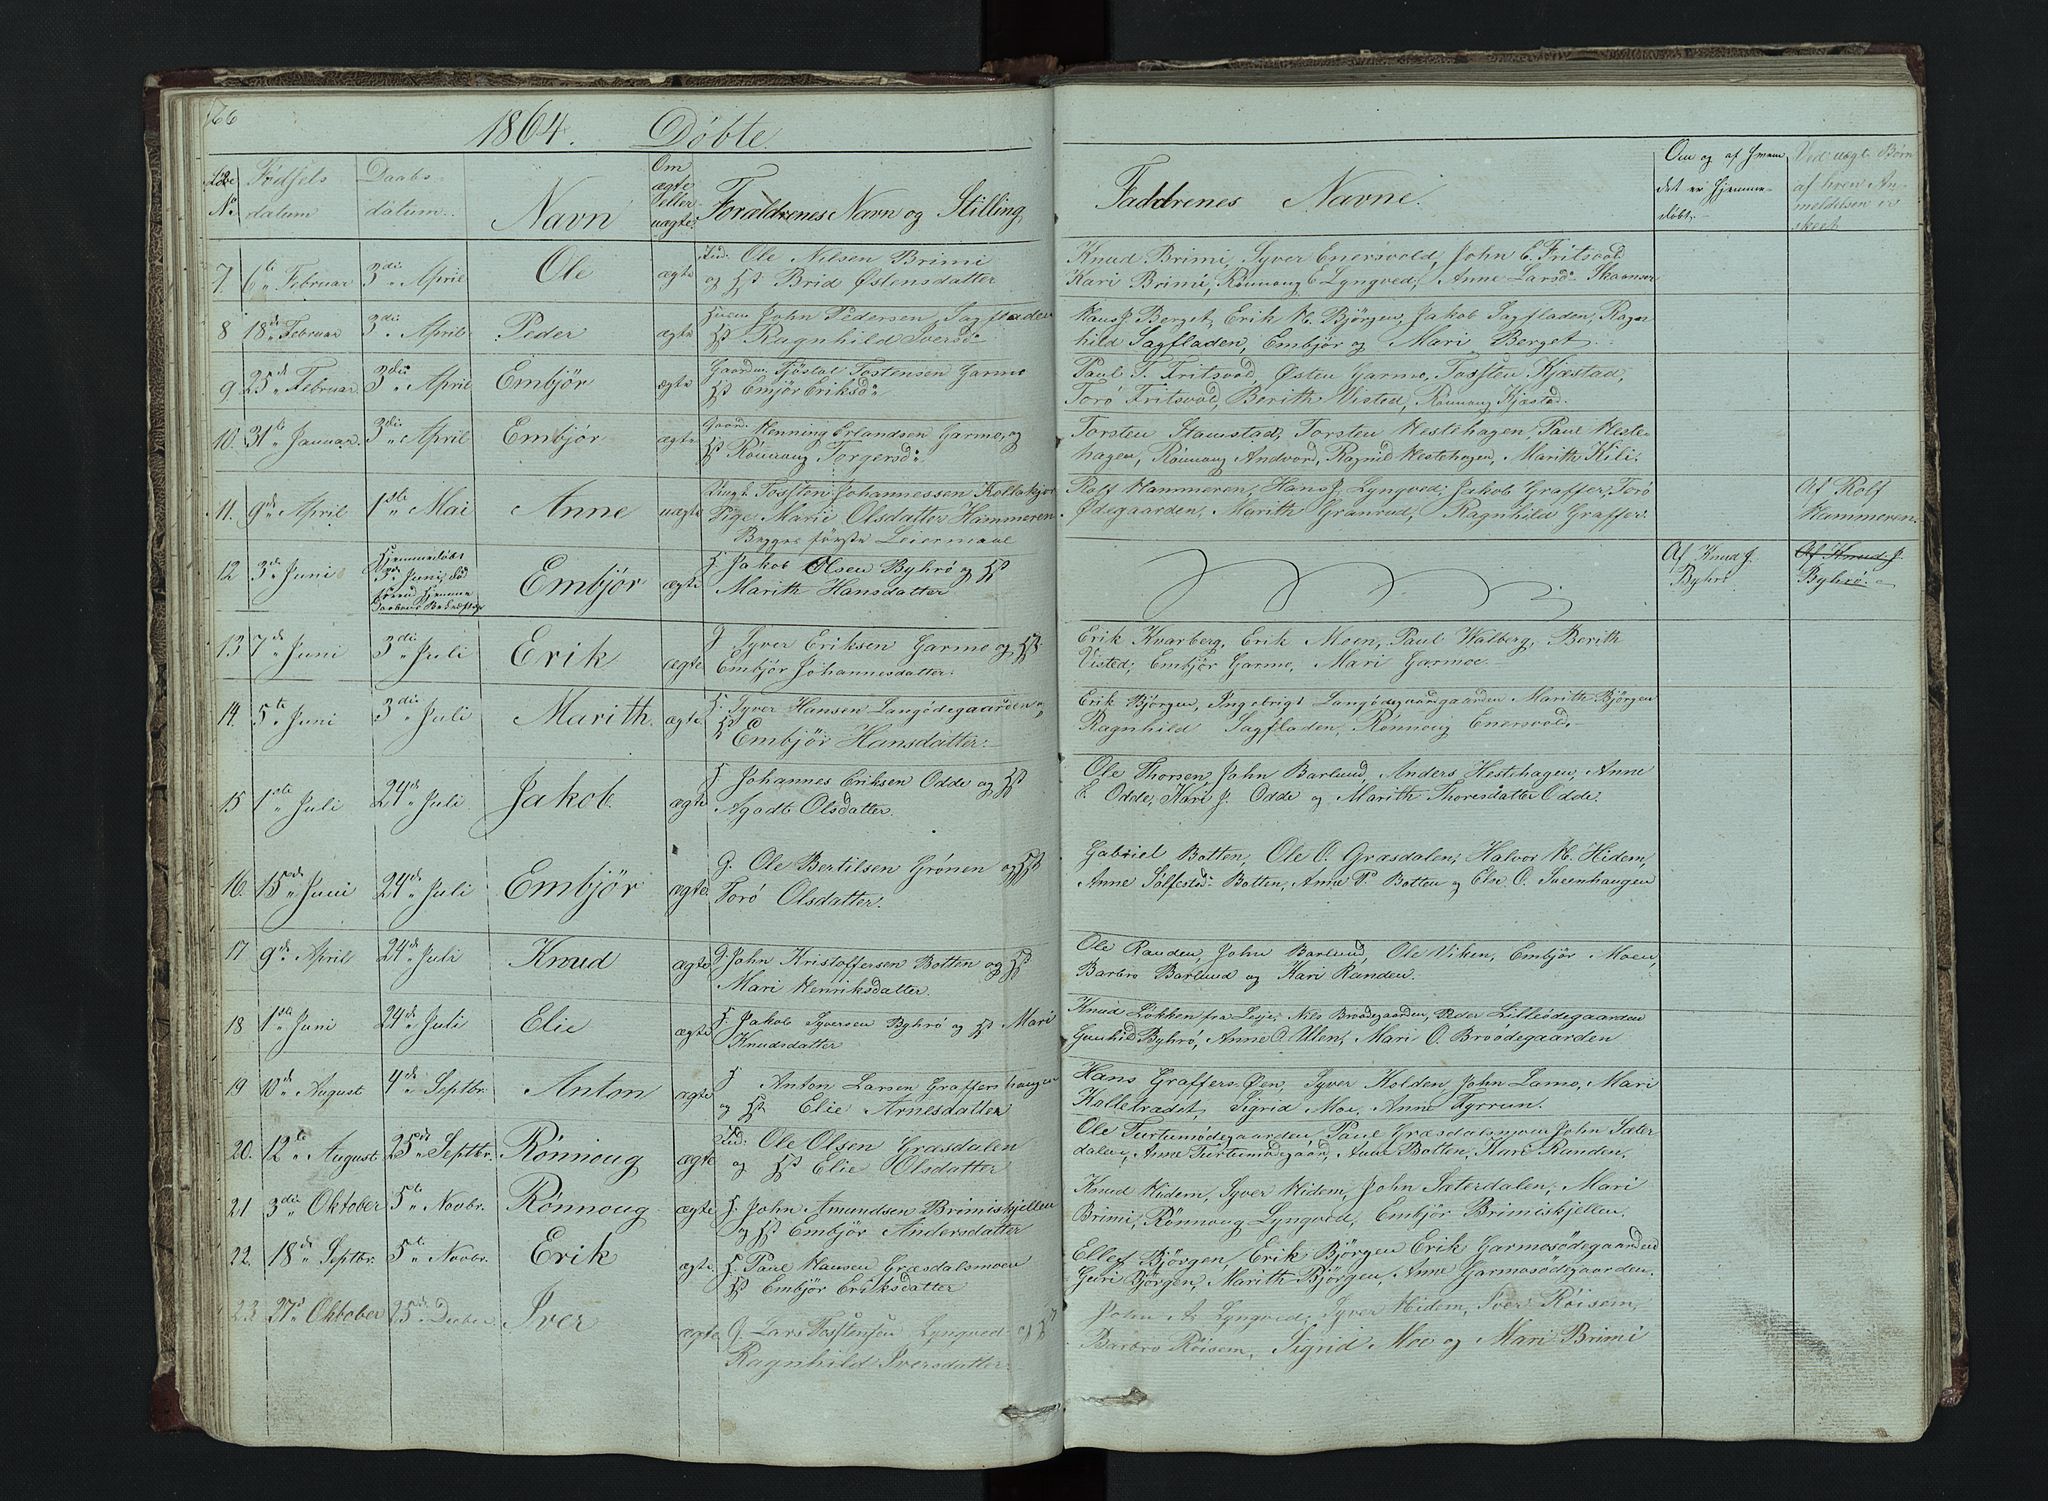 166
1864. Döbte.
Löbe No.
Födsels datum
Daabs datum
Navn
Om ægte eller uægte
Forældrenes Navn og Stilling
Faddrenes Navne.
Om og af hvem det er hjemmedöbt.
Ved uægt. Börn af hvem Anmeldelsen er skeet
7. 6te Februar 3die April Ole ægte Ind. Ole Nilsen Brimi
og Hst Brid Østensdatter
Knud Brimi, Syver Enersvold, John E. Fritsvold
Kari Brimi, Rönnoug E. Lyngved, Anne Larsd. Skaanser
8 18de Februar 3die April Peder ægte Huusm John Pedersen Sagfladen
Hst Ragnhild Iversd.
Hans J. Berget, Erik H. Björgen, Jakob Sagfladen, Ragn
hild Sagfladen, Embjör og Mari Berget.
9. 25de Februar 3die April Embjör ægte Gaardm. Tjöstol Tostensen Garmo
Hst Emjör Eriksd.
Paul T. Fritsvod, Østen Garmo, Tosften Kjæstad,
Torö Fritsvod, Berith Visted, Rönnoug Kjæstad.
10. 31te Januar. 3die April Embjör ægte Gaard. Henning Erlandsen Garmo, og
Hst Rönnoug Torgersd.
Torsten Stamstad, Torsten Hestehagen, Paul Heste-
hagen, Rönnoug Andvord, Ragnild Hestehagen, Marith Kili.
11. 9de April 1ste Mai Anne uægte Ungk. Tosften Johannessen Kollekjor
Pige Marie Olsdatter Hammeren
Begges förste Leiermaal
Rolf Hammeren, Hans J. Lyngved, Jakob Graffer, Torö
Ødegaarden, Marith Granrud, Ragnhild Graffer.
Af Rolf
Hammeren.
12 3de Juni Hjemmedöbt
3de Juni, död
förend hjemme
Daabens Bekræftelse
Embjör ægte H. Jakob Olsen Byhrö og Hst
Marith Hansdatter
Af Knud J.
Byhrö
Af Knud J.
Byhrö.
13 7de Juni 3die Juli Erik ægte G Syver Eriksen Garmo og Hst
Embjör Johannesdatter.
Erik Kvarberg, Erik Moen, Paul Valberg, Berith
Visted, Embjör Garmo, Mari Garmoe
14. 5te Juni 3die Juli Marith. ægte H. Syver Hansen Langödegaarden og
Hst Embjör Hansdatter.
Erik Björgen, Ingebrigt Langödegaardgaarden Marith Björgen
Ragnhild Sagfladen, Rönnoug Enersvold.
15 1ste Juli 24de Juli Jakob. ægte H Johannes Eriksen Odde og Hst
Agodt Olsdatter.
Ole Thorsen, John Barlund, Anders Hestehagen, Anne
E. Odde, Kari J. Odde og Marith Thoresdatter Odde.
16. 15de Juni 24de Juli Embjör ægte G. Ole Bertilsen Grönen og Hst
Torö Olsdatter.
Gabriel Botten, Ole O. Græsdalen, Halvor H. Hidem,
Anne Sölfestd. Botten, Anne P. Botten og Else O. Sveenhaugen
17 9de April 24de Juli Knud ægte G. John Kristoffersen Botten og Hst
Mari Henriksdatter.
Ole Randen, John Barlund, Ole Viken, Embjör Moen,
Barbro Barlund og Kari Randen.
18 1ste Juni 24de Juli Elie ægte H. Jakob Syversen Byhrö og Hst Mari
Knudsdatter
Knud Lökken fra Lesje, Nils Bröodegaarden, Peder Lilleödegaarden
Gunhild Byhrö, Anne O. Ulen, Mari O. Bröödegaarden
19 10de August 4de Septbr. Anton ægte H Anton Larsen Graffershaugen
og Hst Elie Arnesdatter
Hans Graffers Øen, Syver Holden, John Lamo, Mari
Kolletrædet, Sigrid Moe, Anne Tyrrun.
20. 12te August 25de Septbr. Rönnoug ægte Ind: Ole Olsen Græsdalen
og Hst Elie Olsdatter
Ole Turtumödegaarden, Paul Græsdalsmoen John Sæter
dalen, Anne Turtumödegaard, Anne Botten, Kari Randen.
21 3die Oktober 5te Novbr. Rönnoug ægte H. John Amundsen Brimiskjellen
og Hst Embjör Andersdatter
Knud Hidem, Syver Hidem, John Sæterdalen, Mari
Brimi, Rönnoug Lyngved, Embjör Brimiskjellen.
22. 18de Septbr. 5te Novbr. Erik ægte H. Paul Hansen Græsdalsmoen
Hst Embjör Eriksdatter
Ellef Björgen, Erik Björgen Erik Garmosödegaarden
Guri Björgen, Marith Björgen, Anne Garmosödegaarden.
23. 27d Oktober 25de Decber Iver ægte G. Lars Tosftensen Lyngved og Hst
Ragnhild Iversdatter.
John A. Lyngved, Syver Hidem, Iver Röisem,
Barbro Röisem, Sigrid Moe og Mari Brimi